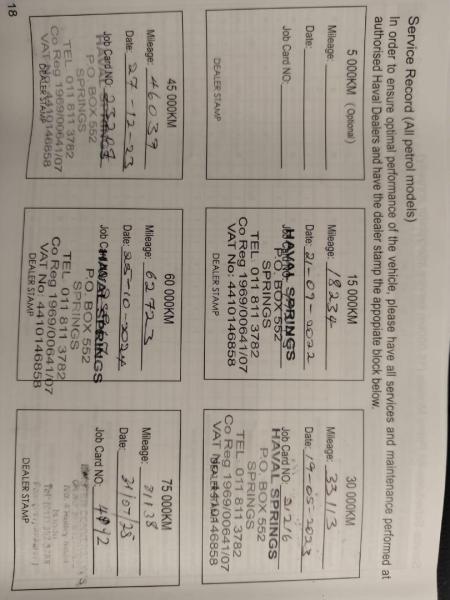 Service Record (All petrol models)
In order to ensure optimal performance of the vehicle, please have all services and maintenance performed at
authorised Haval Dealers and have the dealer stamp the appopiate block below.
5 000KM (Optional)
Mileage:
Date:
Job Card NO:
DEALER STAMP
15 000KM
Mileage: 18234
Date: 21-07-2022
HAVAL SPRINGS
P.O. BOX 552
SPRINGS
TEL: 011 811 3782
Co Reg 1969/00641/07
VAT No: 4410146858
DEALER STAMP
30 000KM
Mileage: 33113
Date: 19-05-2023
Job Card NO: 21216
HAVAL SPRINGS
P.O. BOX 552
SPRINGS
TEL: 011 811 3782
Co Reg 1969/00641/07
VAT No: 4410146858
DEALER STAMP
45 000KM
Mileage: 46039
Date: 27-12-23
Job Card NO:
HAVAL SPRINGS
P.O. BOX 552
SPRINGS
TEL: 011 811 3782
Co Reg 1969/00641/07
VAT No: 4410146858
DEALER STAMP
60 000KM
Mileage: 62723
Date: 25-10-2024
Job Card
HAVAL SPRINGS
P.O. BOX 552
SPRINGS
TEL: 011 811 3782
Co Reg 1969/00641/07
VAT No: 4410146858
DEALER STAMP
75 000KM
Mileage: 71138
Date: 31/07/25
Job Card NO: 4992
DEALER STAMP
18